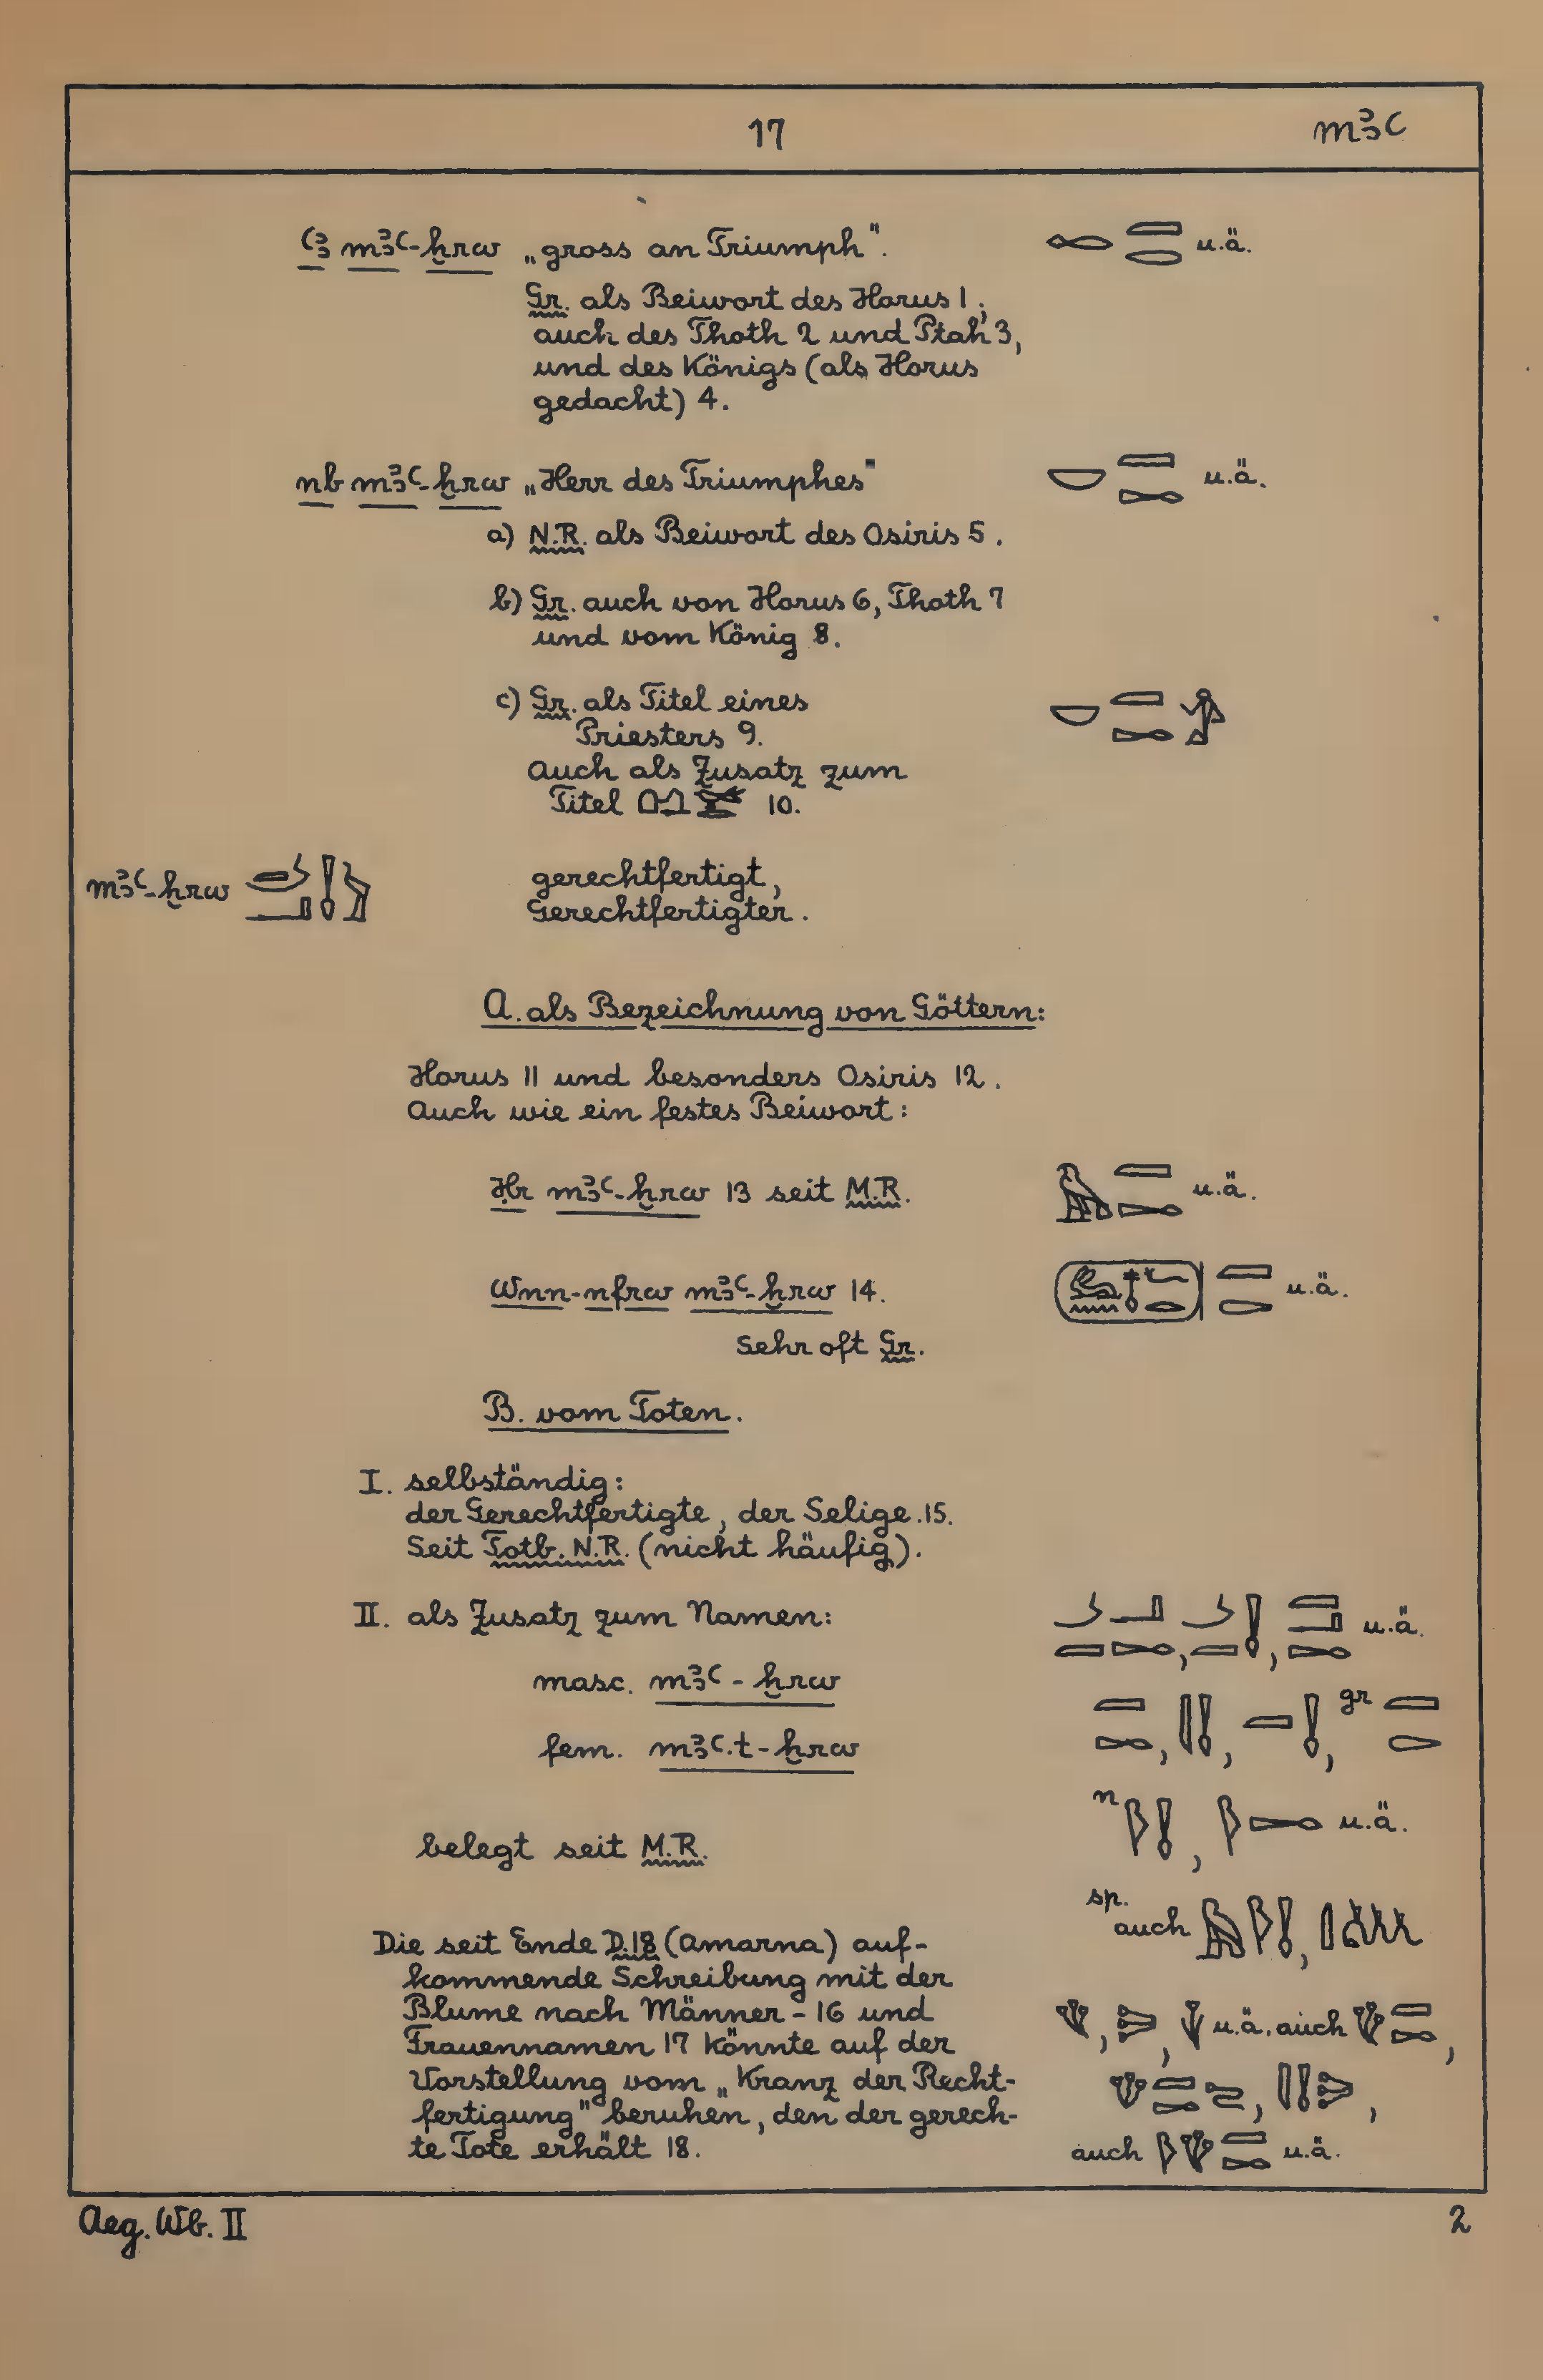 17 mꜣꜥ
ꜥꜣ mꜣꜥ-ḫrw „gross an Triumph". u.ä.
Gr. als Beiwort des Horus 1;
auch des Thoth 2 und Ptah 3,
und des Königs (als Horus
gedacht) 4.
nb mꜣꜥ-ḫrw „Herr des Triumphes" u.ä.
a) N.R. als Beiwort des Osiris 5.
b) Gr. auch von Horus 6, Thoth 7
und vom König 8.
c) Gr. als Titel eines
Priesters 9.
auch als Zusatz zum
Titel 10.
mꜣꜥ-ḫrw gerechtfertigt,
Gerechtfertigter.
A. als Bezeichnung von Göttern:
Horus 11 und besonders Osiris 12.
Auch wie ein festes Beiwort:
Ḥr mꜣꜥ-ḫrw 13 seit M.R. u.ä.
Wnn-nfrw mꜣꜥ-ḫrw 14. u.ä.
Sehr oft Gr.
B. vom Toten.
I. selbständig:
der Gerechtfertigte, der Selige. 15.
Seit Totb. N.R. (nicht häufig).
II. als Zusatz zum Namen: u.ä.
masc. mꜣꜥ-ḫrw
gr
fem. mꜣꜥ.t-ḫrw
n u.ä.
belegt seit M.R.
sp. auch
Die seit Ende D.18 (Amarna) auf-
kommende Schreibung mit der
Blume nach Männer- 16 und u.ä. auch
Frauennamen 17 könnte auf der
Vorstellung vom „Kranz der Recht-
fertigung" beruhen, den der gerech-
te Tote erhält 18. auch u.ä.
Aeg. Wb. II 2